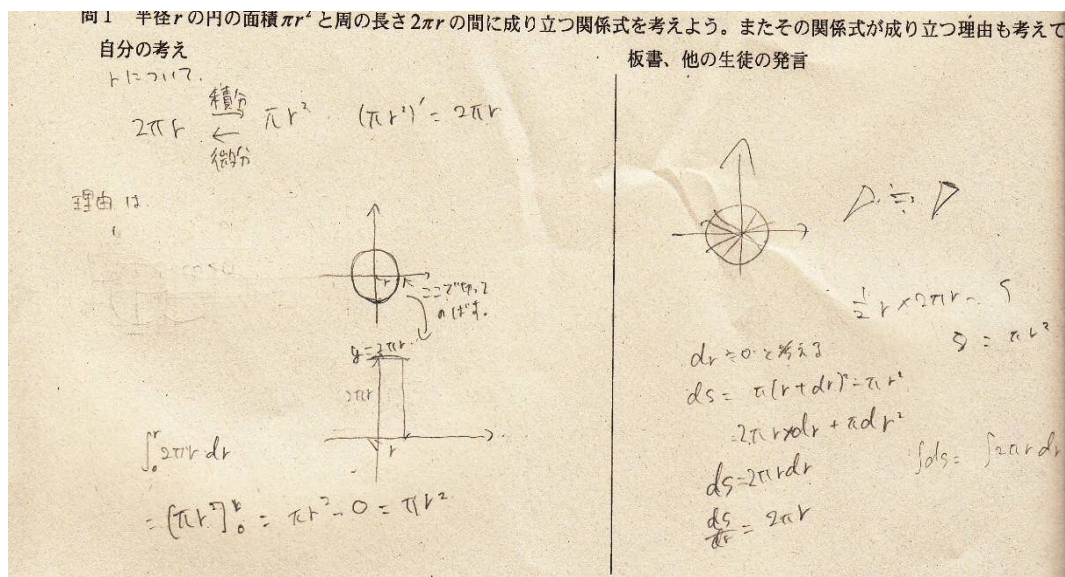 問1 半径rの円の面積πr²と周の長さ2πrの間に成り立つ関係式を考えよう。またその関係式が成り立つ理由も考えて
自分の考え
rについて.
2πr 積分 → ← 微分 πr² (πr²)' = 2πr
理由は
r
ここで切って
のばす。
y=2πr
2πr
r
∫₀ʳ 2πr dr
= [πr²]₀ʳ = πr² - 0 = πr²
板書、他の生徒の発言
≒
1/2 r × 2πr = S
S = πr²
dr≒0と考える
dS = π(r+dr)² - πr²
= 2πr×dr + πdr²
dS = 2πrdr
dS/dr = 2πr
∫dS = ∫2πr dr